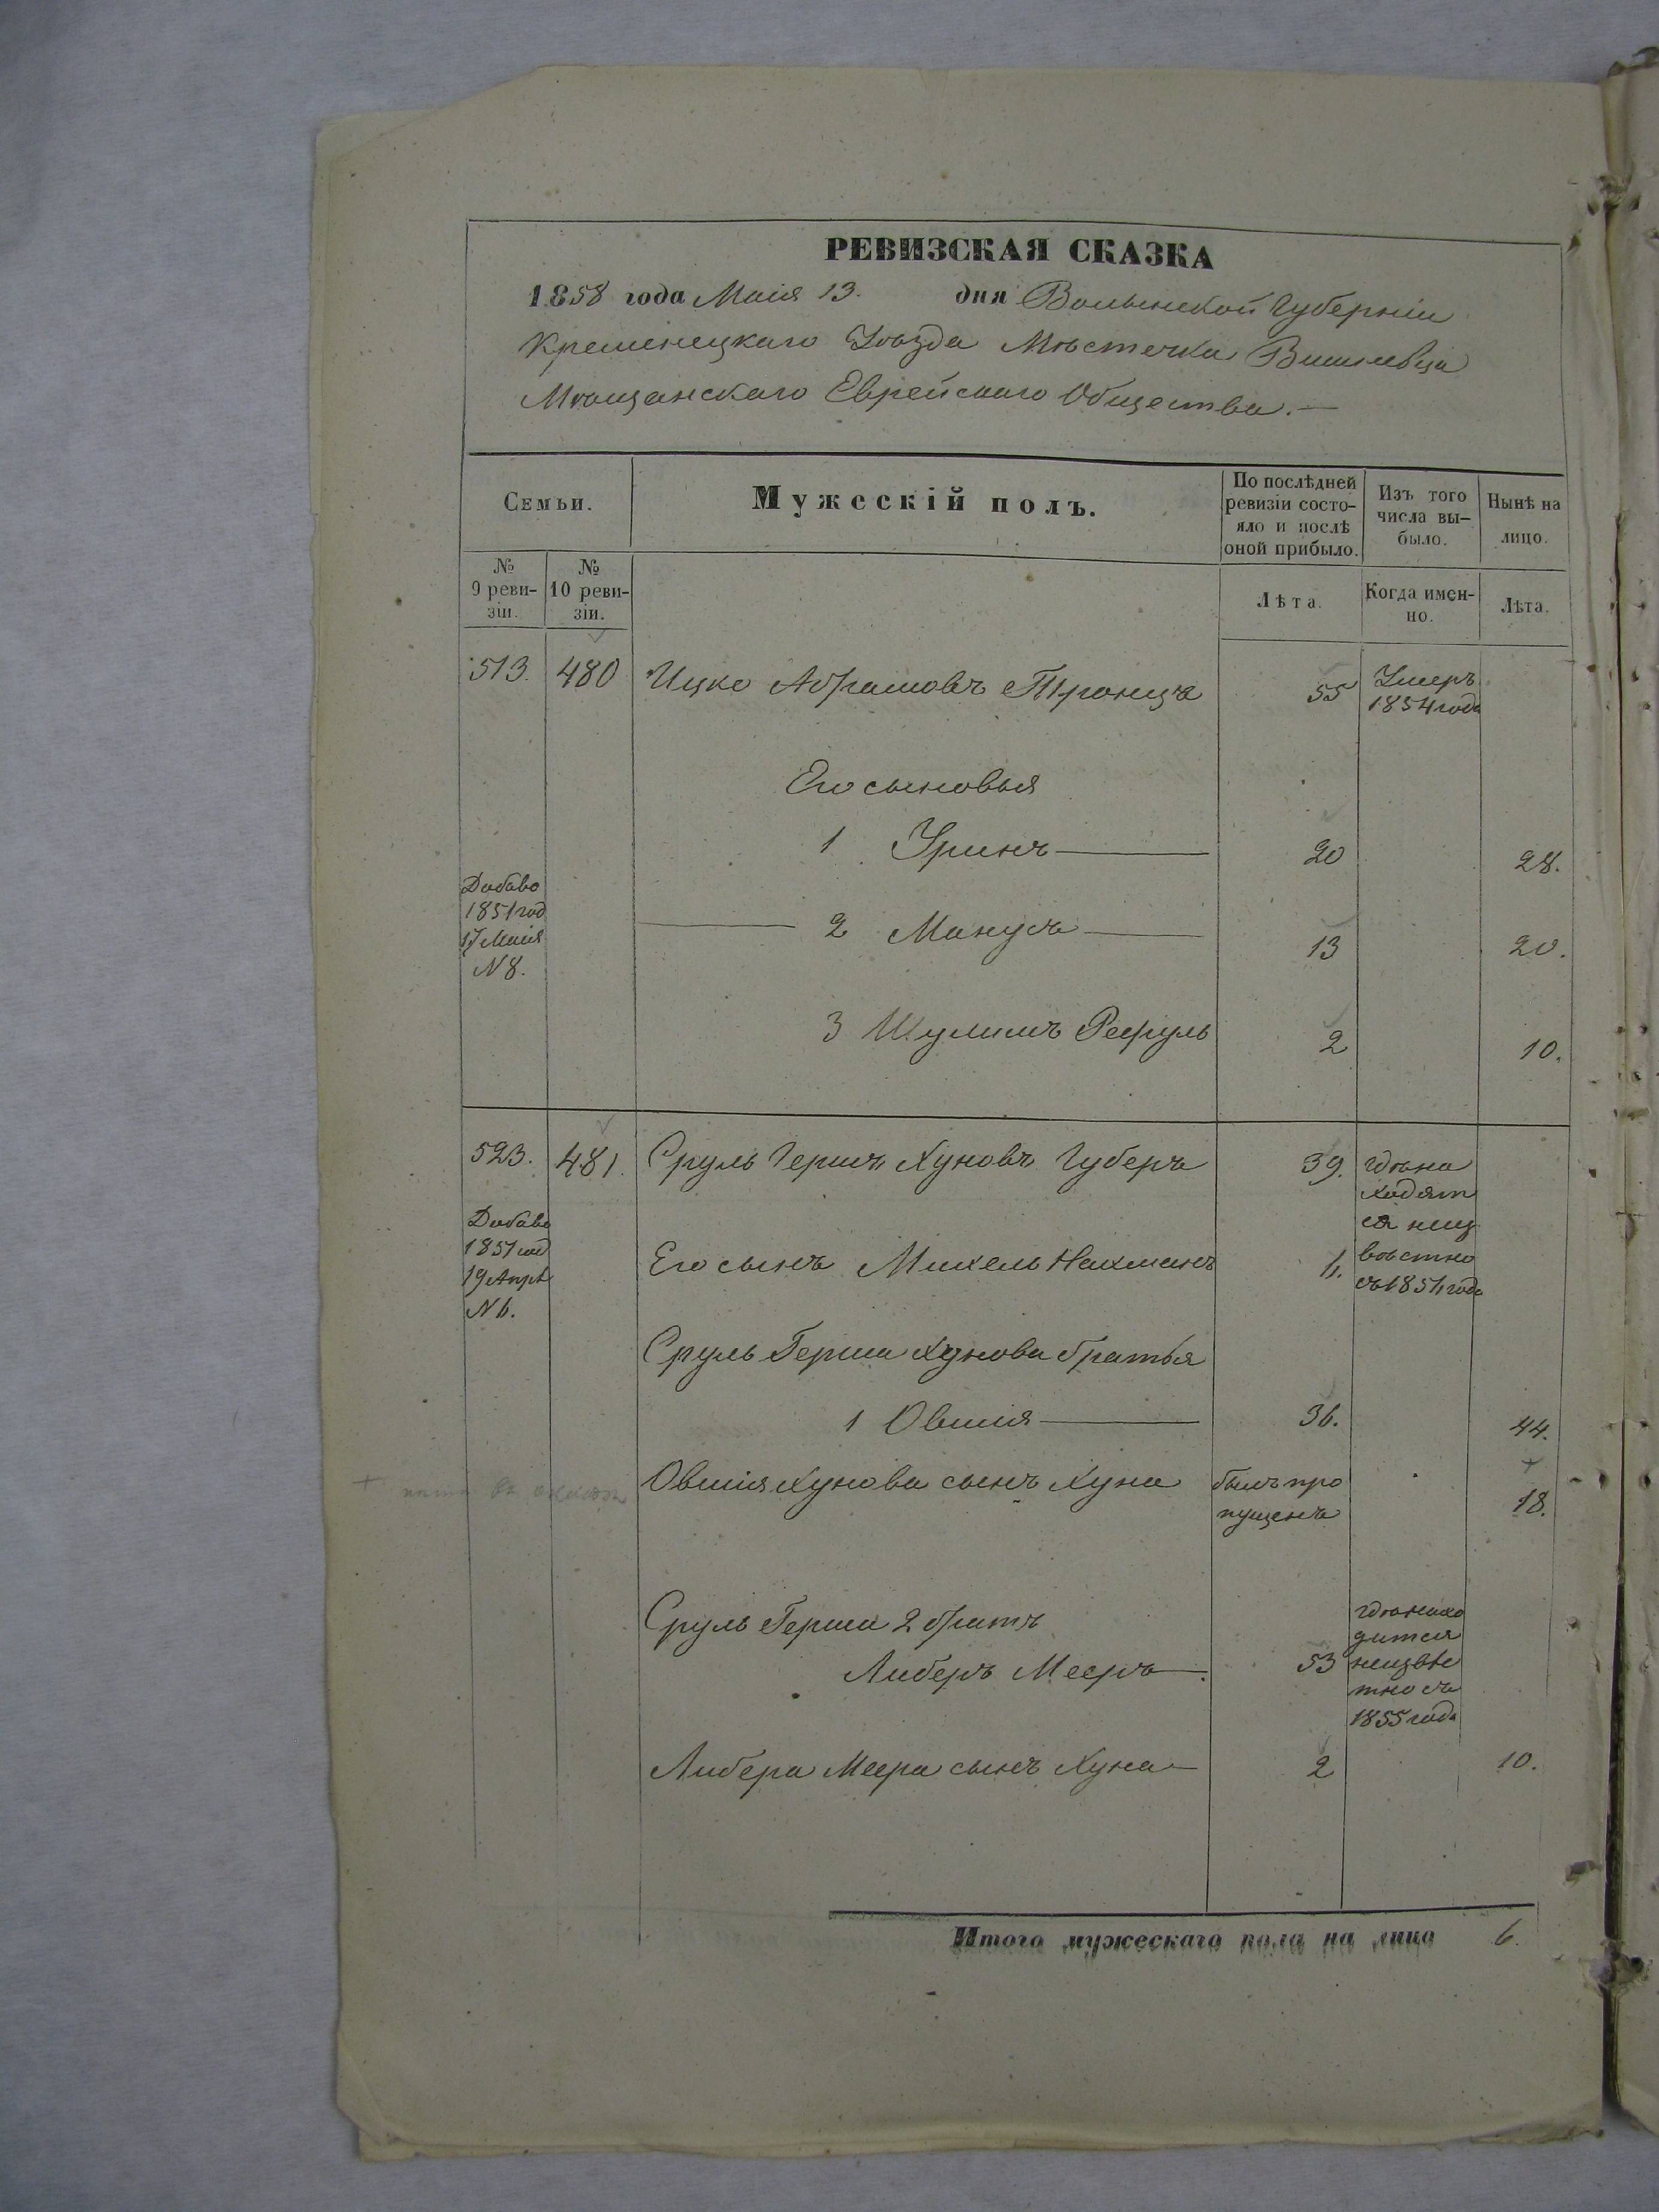 РЕВИЗСКАЯ СКАЗКА
1858 года Маія 13. дня Волынской Губерніи
Кременецкаго Уѣзда Мѣстечка Вишневца
Мѣщанскаго Еврейскаго Общества.—
Семьи.
Мужескій полъ.
По послѣдней ревизіи состо-
яло и послѣ
оной прибыло.
Изъ того
числа вы-
было.
Нынѣ на
лицо.
№
9 реви-
зіи.
№
10 реви-
зіи.
Лѣта.
Когда имен-
но.
Лѣта.
513. 480 Ицко Абрамовъ Троница 55 Умеръ
1854 года
Его сыновья
1 Уринъ 20 28.
Добаво
1851 год
17 Маія
N 8.
2 Манусъ 13 20.
3 Шулимъ Рефуль 2 10.
523. 481. Сруль Гершъ Хуновъ Губеръ 39. гдѣ на
ходят
ся неиз
вѣстно
съ 1854 года
Добаво
1851 год
19 Апрѣ
N 6.
Его сынъ Михель Нахманъ 11.
Сруль Герша Хунова братья
1 Овшія 36. 44.
Овшія Хунова сынъ Хуна былъ про
пущенъ 18.
Сруль Герша 2 братъ
Либеръ Мееръ 53
гдѣ нахо
дится
неизвѣс
тно съ
1855 года
Либера Меера сынъ Хуна 2 10.
Итого мужескаго пола на лицо 6.